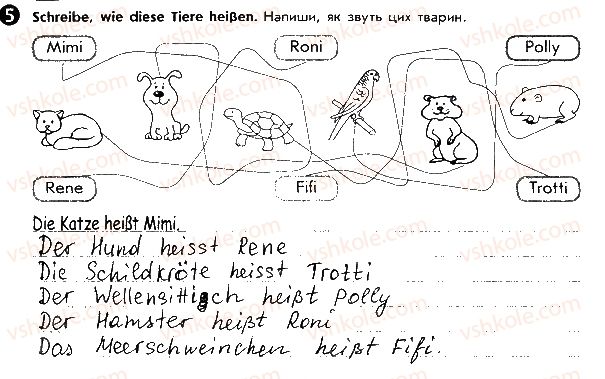 5 Schreibe, wie diese Tiere heißen. Напиши, як звуть цих тварин.
Mimi Roni Polly
Rene Fifi Trotti
Die Katze heißt Mimi.
Der Hund heisst Rene
Die Schildkröte heisst Trotti
Der Wellensittigch heißt Polly
Der Hamster heißt Roni
Das Meerschweinchen heißt Fifi.
vshkole.com